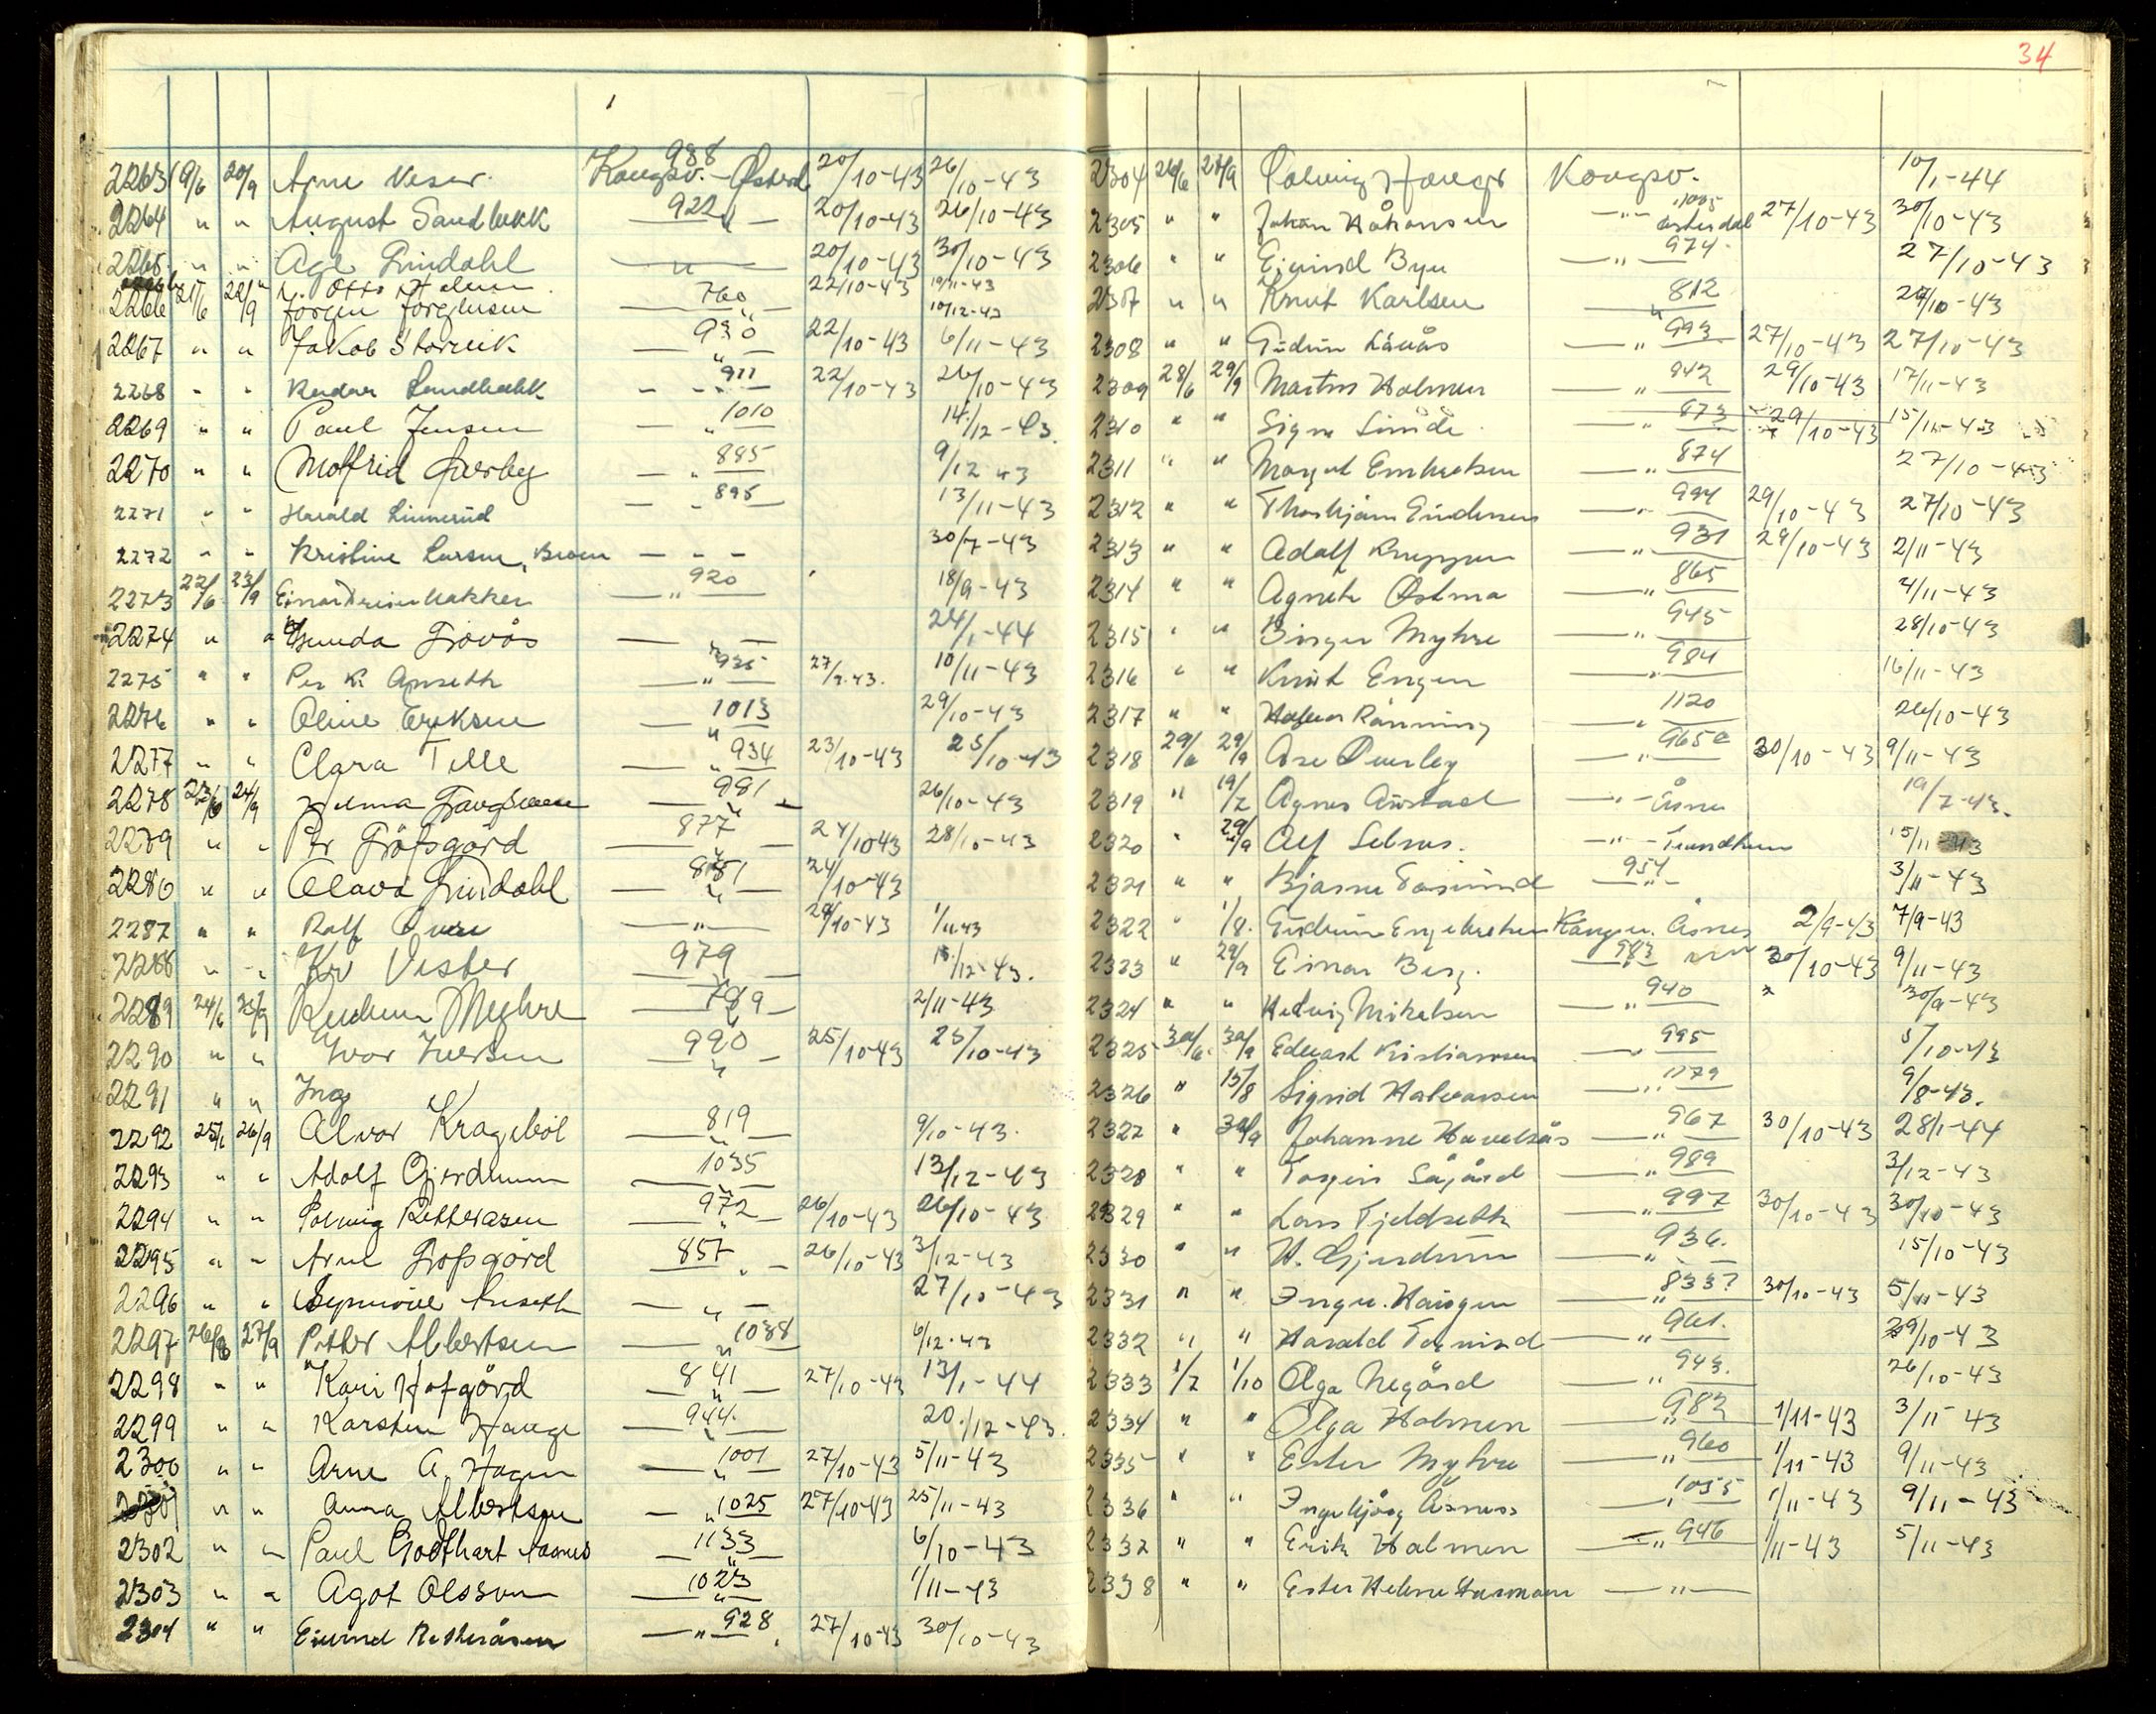 34
2263 19/6 20/9 Arne Veser Kongsv.-Østerd. 988 20/10-43 26/10-43
2264 " " August Sandbekk — 922 " — 20/10-43 26/10-43
2265 " " Age Lindahl — " — 20/10-43 30/10-43
Otto Holum 22/10-43 19/11-43
2266 21/6 22/9 Jörgen Jörgensen — 760 " — 10/12-43
2267 " " Jakob Storvik — 930 " — 22/10-43 6/11-43
2268 " " Reidar Sandbakk — 911 — 22/10-43 26/10-43
2269 " " Paul Jensen — 1010 " — 14/12-43
2270 " " Molfrid Överby — 885 — 9/12 43
2271 " " Harald Linnerud — 895 — 13/11-43
2272 " " Kristine Larsen, — " — 30/7-43
2273 22/6 23/9 Einar Bakken — " 920 — 18/9-43
2274 " " Gunda Grovös — " — 24/1-44
2275 " " Per K. — " 925 — 27/9.43. 10/11-43
2276 " " Oline Eriksen — 1013 " — 29/10-43
2277 " " Clara Telle — " 934 — 23/10-43 25/10-43
2278 23/6 24/9 — 981 " — 26/10-43
2279 " " Per Gröfsgård — 877 " — 24/10-43 28/10-43
2280 " " Olava Lindahl — 881 " — 24/10-43
2287 " " Rolf — " — 24/10-43 1/11 43
2288 " " Kr Vester — 979 — 15/12-43.
2289 24/6 25/9 Myhre — 789 " — 2/11-43
2290 " " Ivar Iversen — 990 " — 25/10-43 25/10-43
2291 " " Ing
2292 25/6 26/9 Alvar Krageböl — 819 " — 9/10-43.
2293 " " Adolf Gjerdrum — 1035 " — 13/12-43
2294 " " Solveig Petterasen — 972 " — 26/10-43 26/10-43
2295 " " Arne Grofsgörd — 857 " — 26/10-43 3/12-43
2296 " " — " — 27/10-43
2297 26/6 27/9 Petter Albertsen — " 1088 — 6/12-43
2298 " " Kari Hofgörd — 841 " — 27/10-43 13/1-44
2299 " " Karsten Hauge — 944. " — 20./12-43.
2300 " " Arne A. Hagen — " 1001 — 27/10-43 5/11-43
2301 " " Anna Albertsen — " 1025 27/10-43 25/11-43
2302 " " Paul Godthart — 1133 " — 6/10-43
2303 " " Agot Olsson — 1023 " — 1/11-43
2304 " " Eivind — " 928 27/10-43 30/10-43
2304 26/6 27/9 Solveig Kongsv. 10/1-44
2305 " " Johan Håkonsen — " — 1005 Østerdal 27/10-43 30/10-43
2306 " " Eivind Bye — " 974 27/10-43
2307 " " Knut Karlsen — " 812 27/10-43
2308 " " Gudrun Låvås — " 993 27/10-43 27/10-43
2309 28/6 29/9 Martin Holmen — " 842 29/10-43 17/11-43
2310 " " Signe Linde — " 873 29/10-43 15/11-43
2311 " " Margit Embretsen — " 874 27/10-43
2312 " " Thorbjörn — " 994 29/10-43 27/10-43
2313 " " Adolf — " 931 29/10-43 2/11-43
2314 " " Agneth Østmo — " 865 4/11-43
2315 " " Birger Myhre — " 945 28/10-43
2316 " " Knut Engen — " 984 16/11-43
2317 " " Rönning — " 1120 26/10-43
2318 29/6 29/9 Åse Överby — " 965 30/10-43 9/11-43
2319 " 19/7 Agnes Austad — " — Åsnes 19/7-43.
2320 " 29/9 Alf — " — Trondhem 15/11-43
2321 " " Bjarne — 954 " — 3/11-43
2322 " 1/8. Gudrun Engebretsen Kongsv. Åsnes 2/9-43 7/9-43
2323 " 29/9 Einar Berg. — 983 30/10-43 9/11-43
2324 " " Hedvig Mikelsen — " 940 30/9-43
2325 30/6. 30/9 Edvart Kristiansen — " 995 5/10-43
2326 " 15/8 Sigrid Halvarsen — " 1179 9/8-43.
2327 " 30/9 Johanne — " 967 30/10-43 28/1-44
2328 " " — " 989 3/12-43
2329 " " Lars Fjeldseth — " 997 30/10-43 30/10-43
2330 " " H. Gjerdrum — " 936. 15/10-43
2331 " " Haugen — " 833? 30/10-43 5/11-43
2332 " " Harald — " 961. 29/10-43
2333 1/7 1/10 Olga Negård — " 943. 26/10-43
2334 " " Olga Holmen — " 982 1/11-43 3/11-43
2335 " " Ester Myhre — " 960 1/11-43 9/11-43
2336 " " Ingebjörg Åsness — " 1055 1/11-43 9/11-43
2337 " " Erik Holmen — " 946 1/11-43 5/11-43
2338 " " Ester Helene — " —